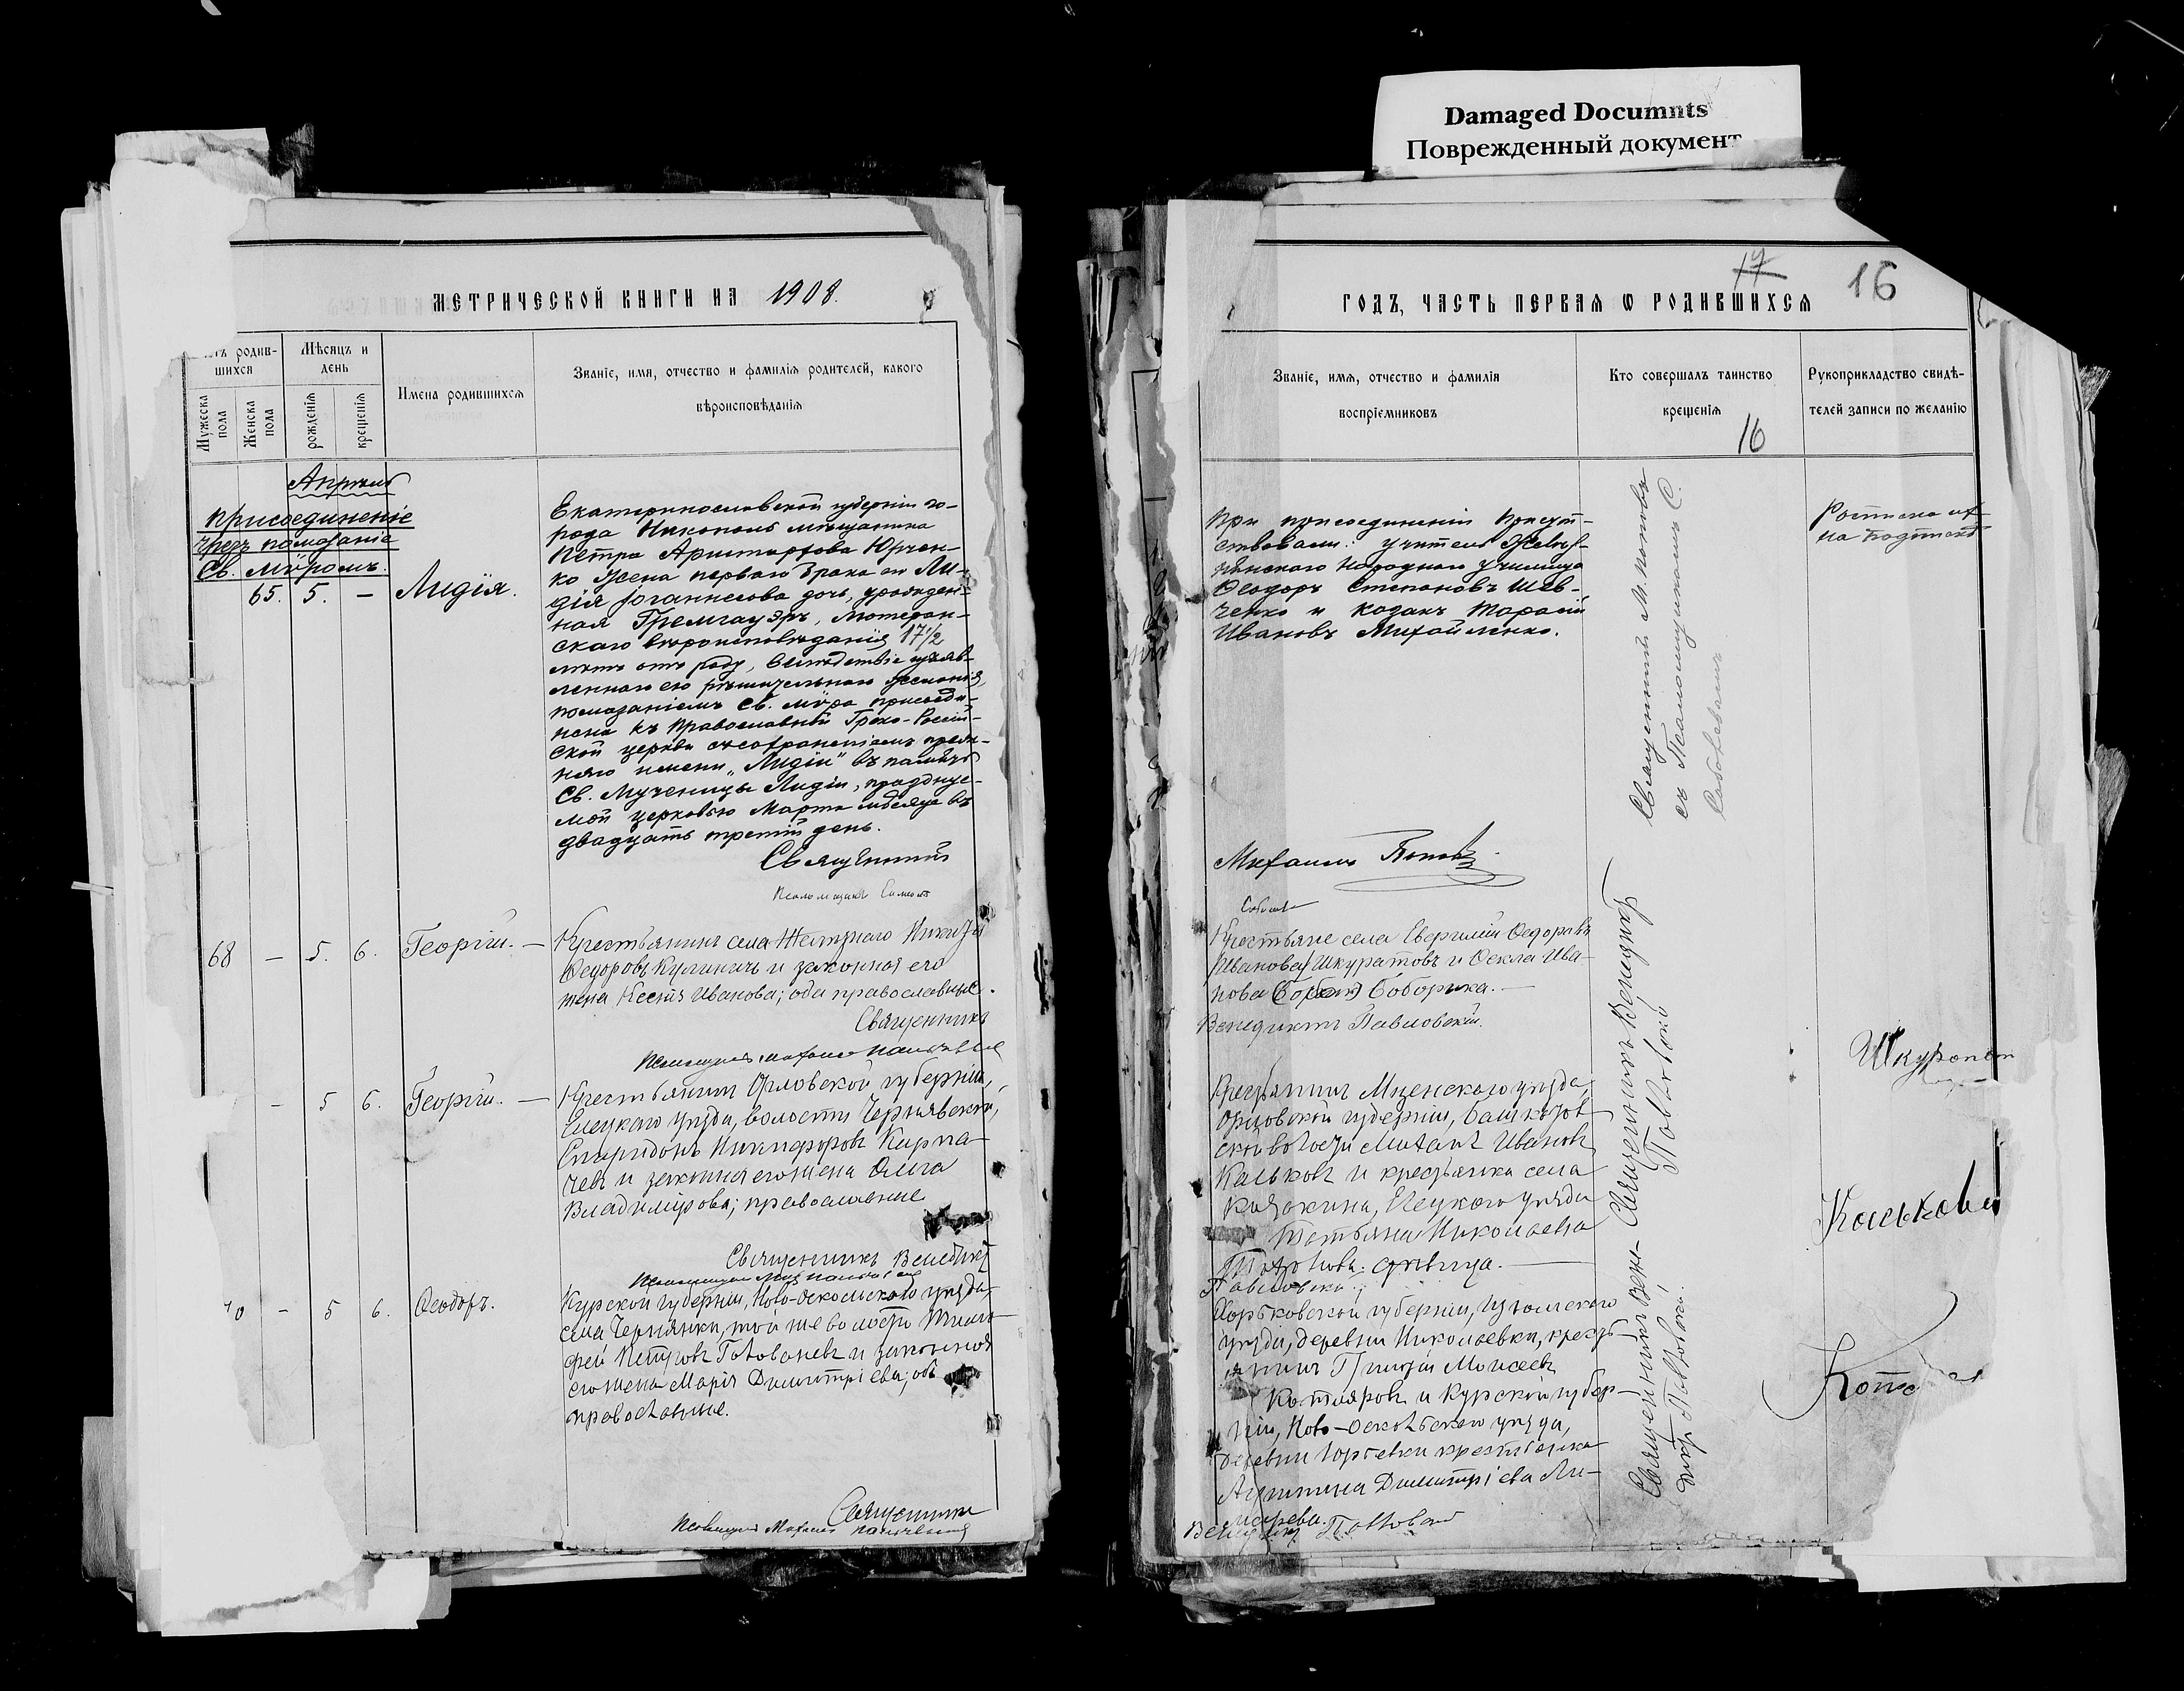 Damaged Documnts
Поврежденный документ
МЕТРИЧЕСКОЙ КНИГИ НА 1908.
родив-
шихся
Мѣсяцъ и
день
Имена родившихся
Званіе, имя, отчество и фамилія родителей, какого
вѣроисповѣданія
Мужеска пола
Женска пола
рожденія
крещенія
Апрѣль
Присоединеніе
чрезъ помазаніе
Св. Мѵромъ.
65. 5. — Лидія.
Екатеринославской губерніи го-
рода Никополь мѣщанина
Петра Аристархова Юрчен-
ко жена перваго брака Ли-
дія Іоганнесова дочь, урожден-
ная Гремгауэръ, Лютеран-
скаго вѣроисповѣданія 17½
лѣтъ отъ роду, вслѣдствіе изъяв-
леннаго ею рѣшительнаго желанія,
помазаніемъ Св. Мѵра присоеди-
нена къ Православной Греко-Россій-
ской церкви съ сохраненіемъ преж-
няго имени "Лидіи" въ память
Св. Мученицы Лидіи, празднуе-
мой церковью Марта мѣсяца въ
двадцать третій день.
Священникъ
Псаломщикъ
68 — 5. 6. Георгій. —
Крестьянинъ села
Ѳедоровъ Кулиничъ и законная его
жена Ксенія Иванова; оба православные.
Священникъ
Псаломщикъ
— 5 6. Георгій. —
Крестьянинъ Орловской губерніи,
Елецкаго уѣзда, волости Чернявской,
Спиридонъ Никифоровъ Кирпа-
чевъ и законная его жена Ольга
Владимірова; православные
Священникъ Венедиктъ
Псаломщикъ
— 5 6. Ѳеодоръ.
Курской губерніи, Ново-Оскольскаго уѣзда,
села Чернянки, той же волости Тимо-
фей Петровъ Голованевъ и законная
его жена Марія Димитріева; оба
православные.
Священникъ
Псаломщикъ Михаилъ
ГОДЪ, ЧАСТЬ ПЕРВАЯ Ѡ РОДИВШИХСЯ
17
16
Званіе, имя, отчество и фамилія
воспріемниковъ
Кто совершалъ таинство
крещенія
16
Рукоприкладство свидѣ-
телей записи по желанію
При присоединеніи присут-
ствовали: учитель
народнаго училища
Ѳеодоръ Степановъ Шев-
ченко и козакъ Тарасій
Ивановъ Михайленко.
Священникъ М. Поповъ
съ Псаломщикомъ С.
Михаилъ Поповъ
Крестьяне села Ѳедоровъ
Шкуратовъ и Ѳекла Ива-
нова Боборыка. —
Венедиктъ Павловскій.
Священникъ Венедиктъ
Павловскій
Шкурат
Крестьянинъ Мценскаго уѣзда,
Орловской губерніи,
ской волости Михаилъ Ивановъ
Кальковъ и крестьянка села
Казакина, Елецкаго уѣзда
Татьяна Николаева
дѣвица. —
Павловскій
Кальковъ
Харьковской губерніи, Изюмскаго
уѣзда, деревни Николаевки, кресть-
янинъ Григорій Моисеевъ
Котляровъ и Курской губер-
ніи, Ново-Оскольскаго уѣзда,
деревни крестьянка
Димитріева
Венедиктъ Павловскій
Священникъ Вене-
диктъ Павловскій.
Котл